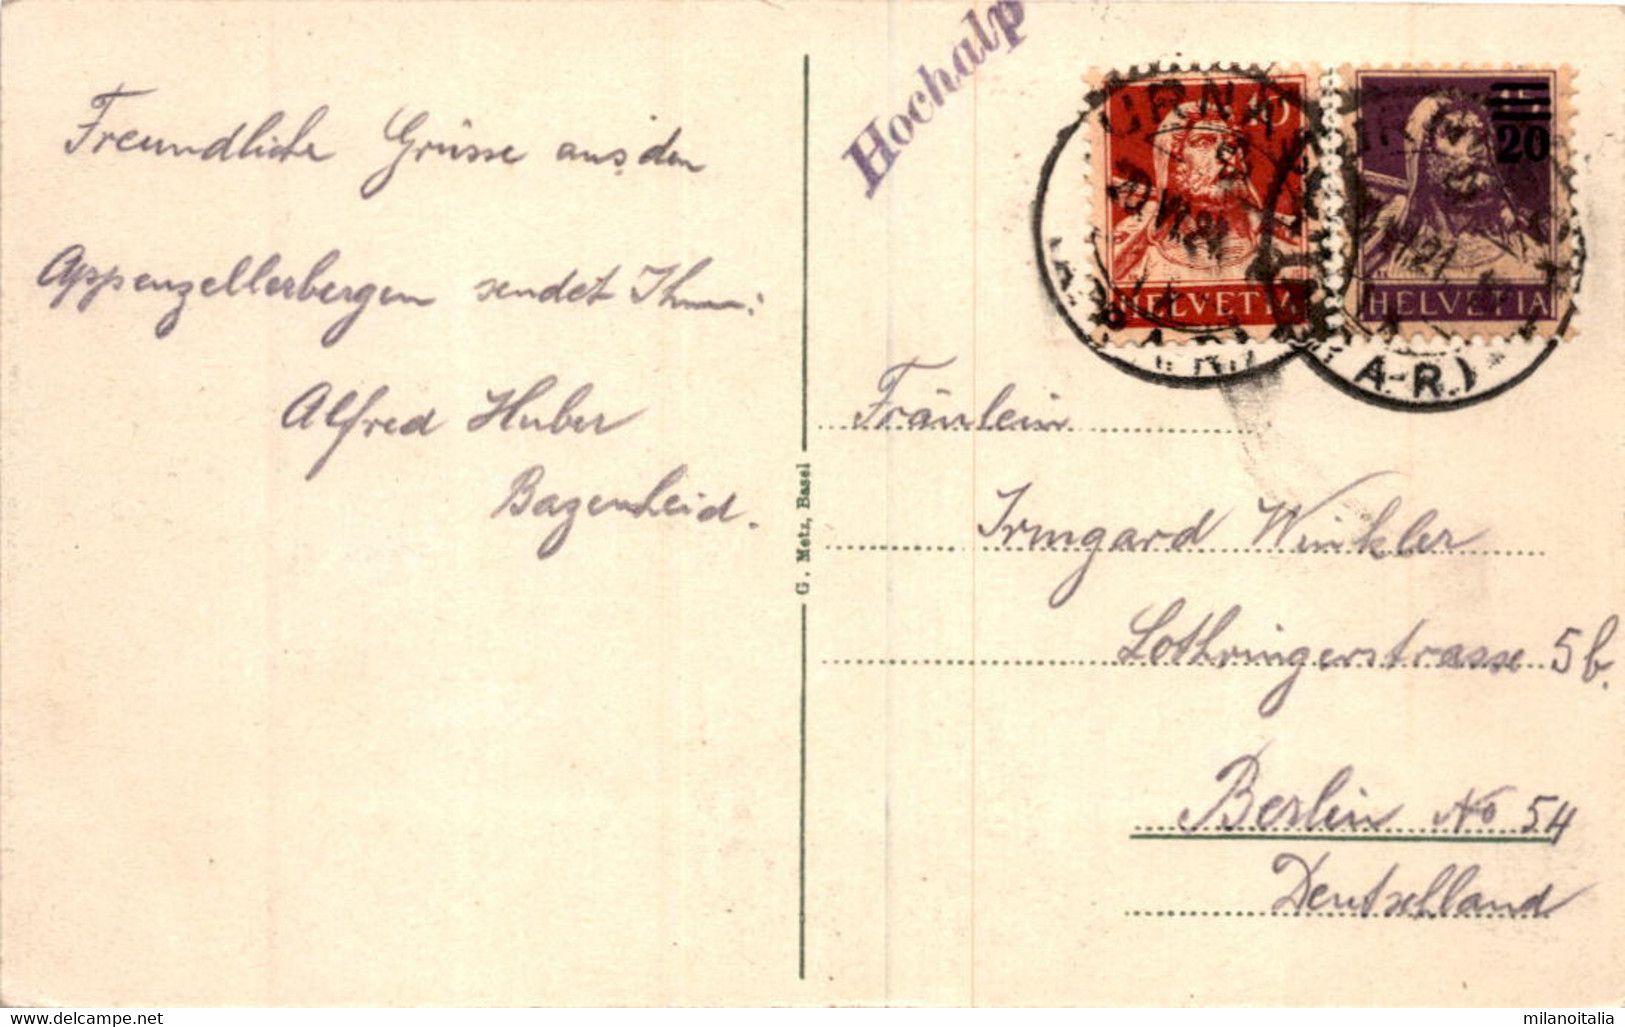 Freundliche Grüsse aus den
Appenzellerbergen sendet Ihnen:
Alfred Huber
Bazenheid.
G. Metz, Basel
Hochalp
HELVETIA
20
HELVETIA
A-R.)
Fräulein
Irmgard Winkler
Lothringerstrasse 5b.
Berlin No 54
Deutschland
delcampe.net
milanoitalia